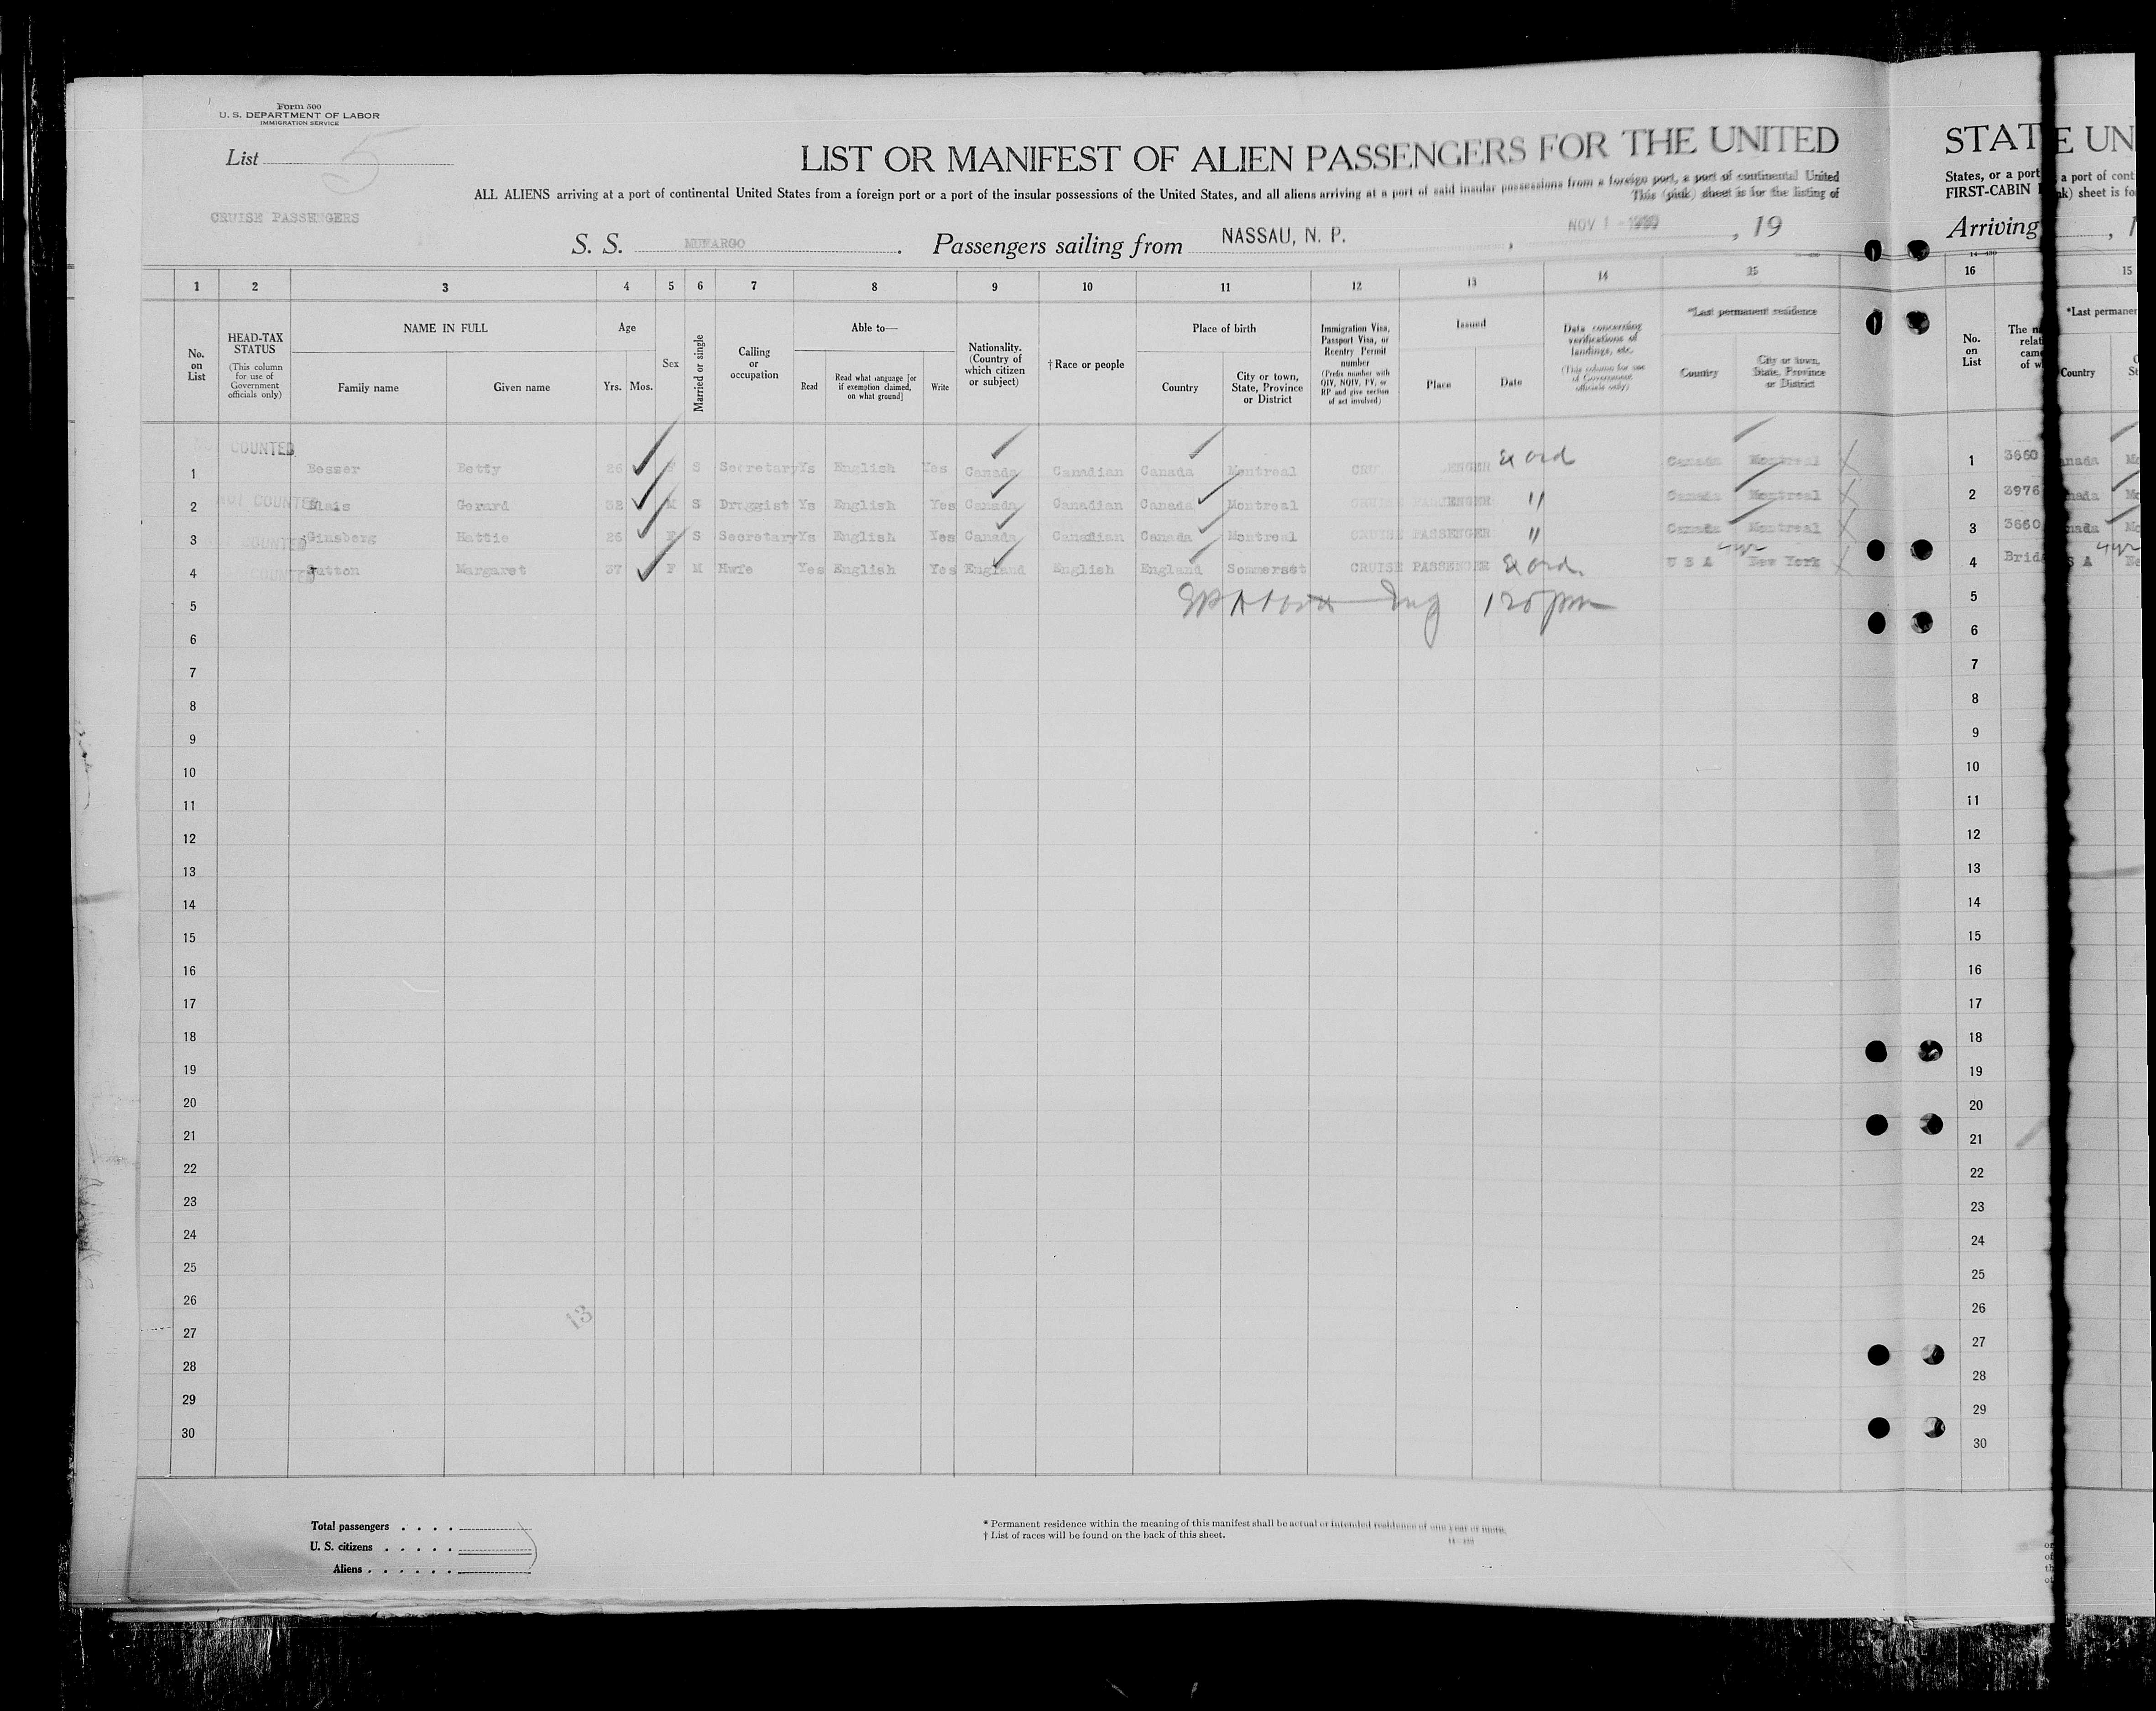 Form 500
U. S. DEPARTMENT OF LABOR
IMMIGRATION SERVICE
List 5
LIST OR MANIFEST OF ALIEN PASSENGERS FOR THE UNITED
ALL ALIENS arriving at a port of continental United States from a foreign port or a port of the insular possessions of the United States, and all aliens arriving at a port of said insular possessions from a foreign port, a port of continental United
This (pink) sheet is for the listing of
CRUISE PASSENGERS
S. S. MUNARGO. Passengers sailing from NASSAU, N. P. , NOV 1 , 19
1 2 3 4 5 6 7 8 9 10 11 12 13 14 15
No. on List
HEAD-TAX STATUS
(This column for use of Government officials only)
NAME IN FULL
Family name
Given name
Age
Yrs. Mos.
Sex
Married or single
Calling or occupation
Able to—
Read
Read what language [or if exemption claimed, on what ground]
Write
Nationality. (Country of which citizen or subject)
† Race or people
Place of birth
Country
City or town, State, Province or District
Immigration Visa, Passport Visa, or Reentry Permit number
(Prefix number with QIV, NQIV, PV, or RP and give section of act involved)
Issued
Place
Date
Data concerning verifications of landings, etc.
(This column for use of Government officials only)
*Last permanent residence
Country
City or town, State, Province or District
1 COUNTED Besser Betty 26 F S Secretary Ys English Yes Canada Canadian Canada Montreal Ex ord Canada Montreal X
2 NOT COUNTED Blais Gerard 32 M S Druggist Ys English Yes Canada Canadian Canada Montreal CRUISE PASSENGER " Canada Montreal X
3 COUNTED Ginsberg Hattie 26 F S Secretary Ys English Yes Canada Canadian Canada Montreal CRUISE PASSENGER " Canada Montreal X
4 COUNTED Sutton Margaret 37 F M Hwfe Yes English Yes England English England Sommerset CRUISE PASSENGER Ex ord. U S A New York X
5
6
7
8
9
10
11
12
13
14
15
16
17
18
19
20
21
22
23
24
25
26
27
28
29
30
13
Total passengers
U. S. citizens
Aliens
* Permanent residence within the meaning of this manifest shall be actual or intended residence of one year or more.
† List of races will be found on the back of this sheet.
STAT
States, or a port
FIRST-CABIN
Arriving
16
No. on List
1 3660
2 3976
3 3660
4 Brid
5
6
7
8
9
10
11
12
13
14
15
16
17
18
19
20
21
22
23
24
25
26
27
28
29
30
E UN
a port of cont
nk) sheet is fo
15
*Last permanen
Country